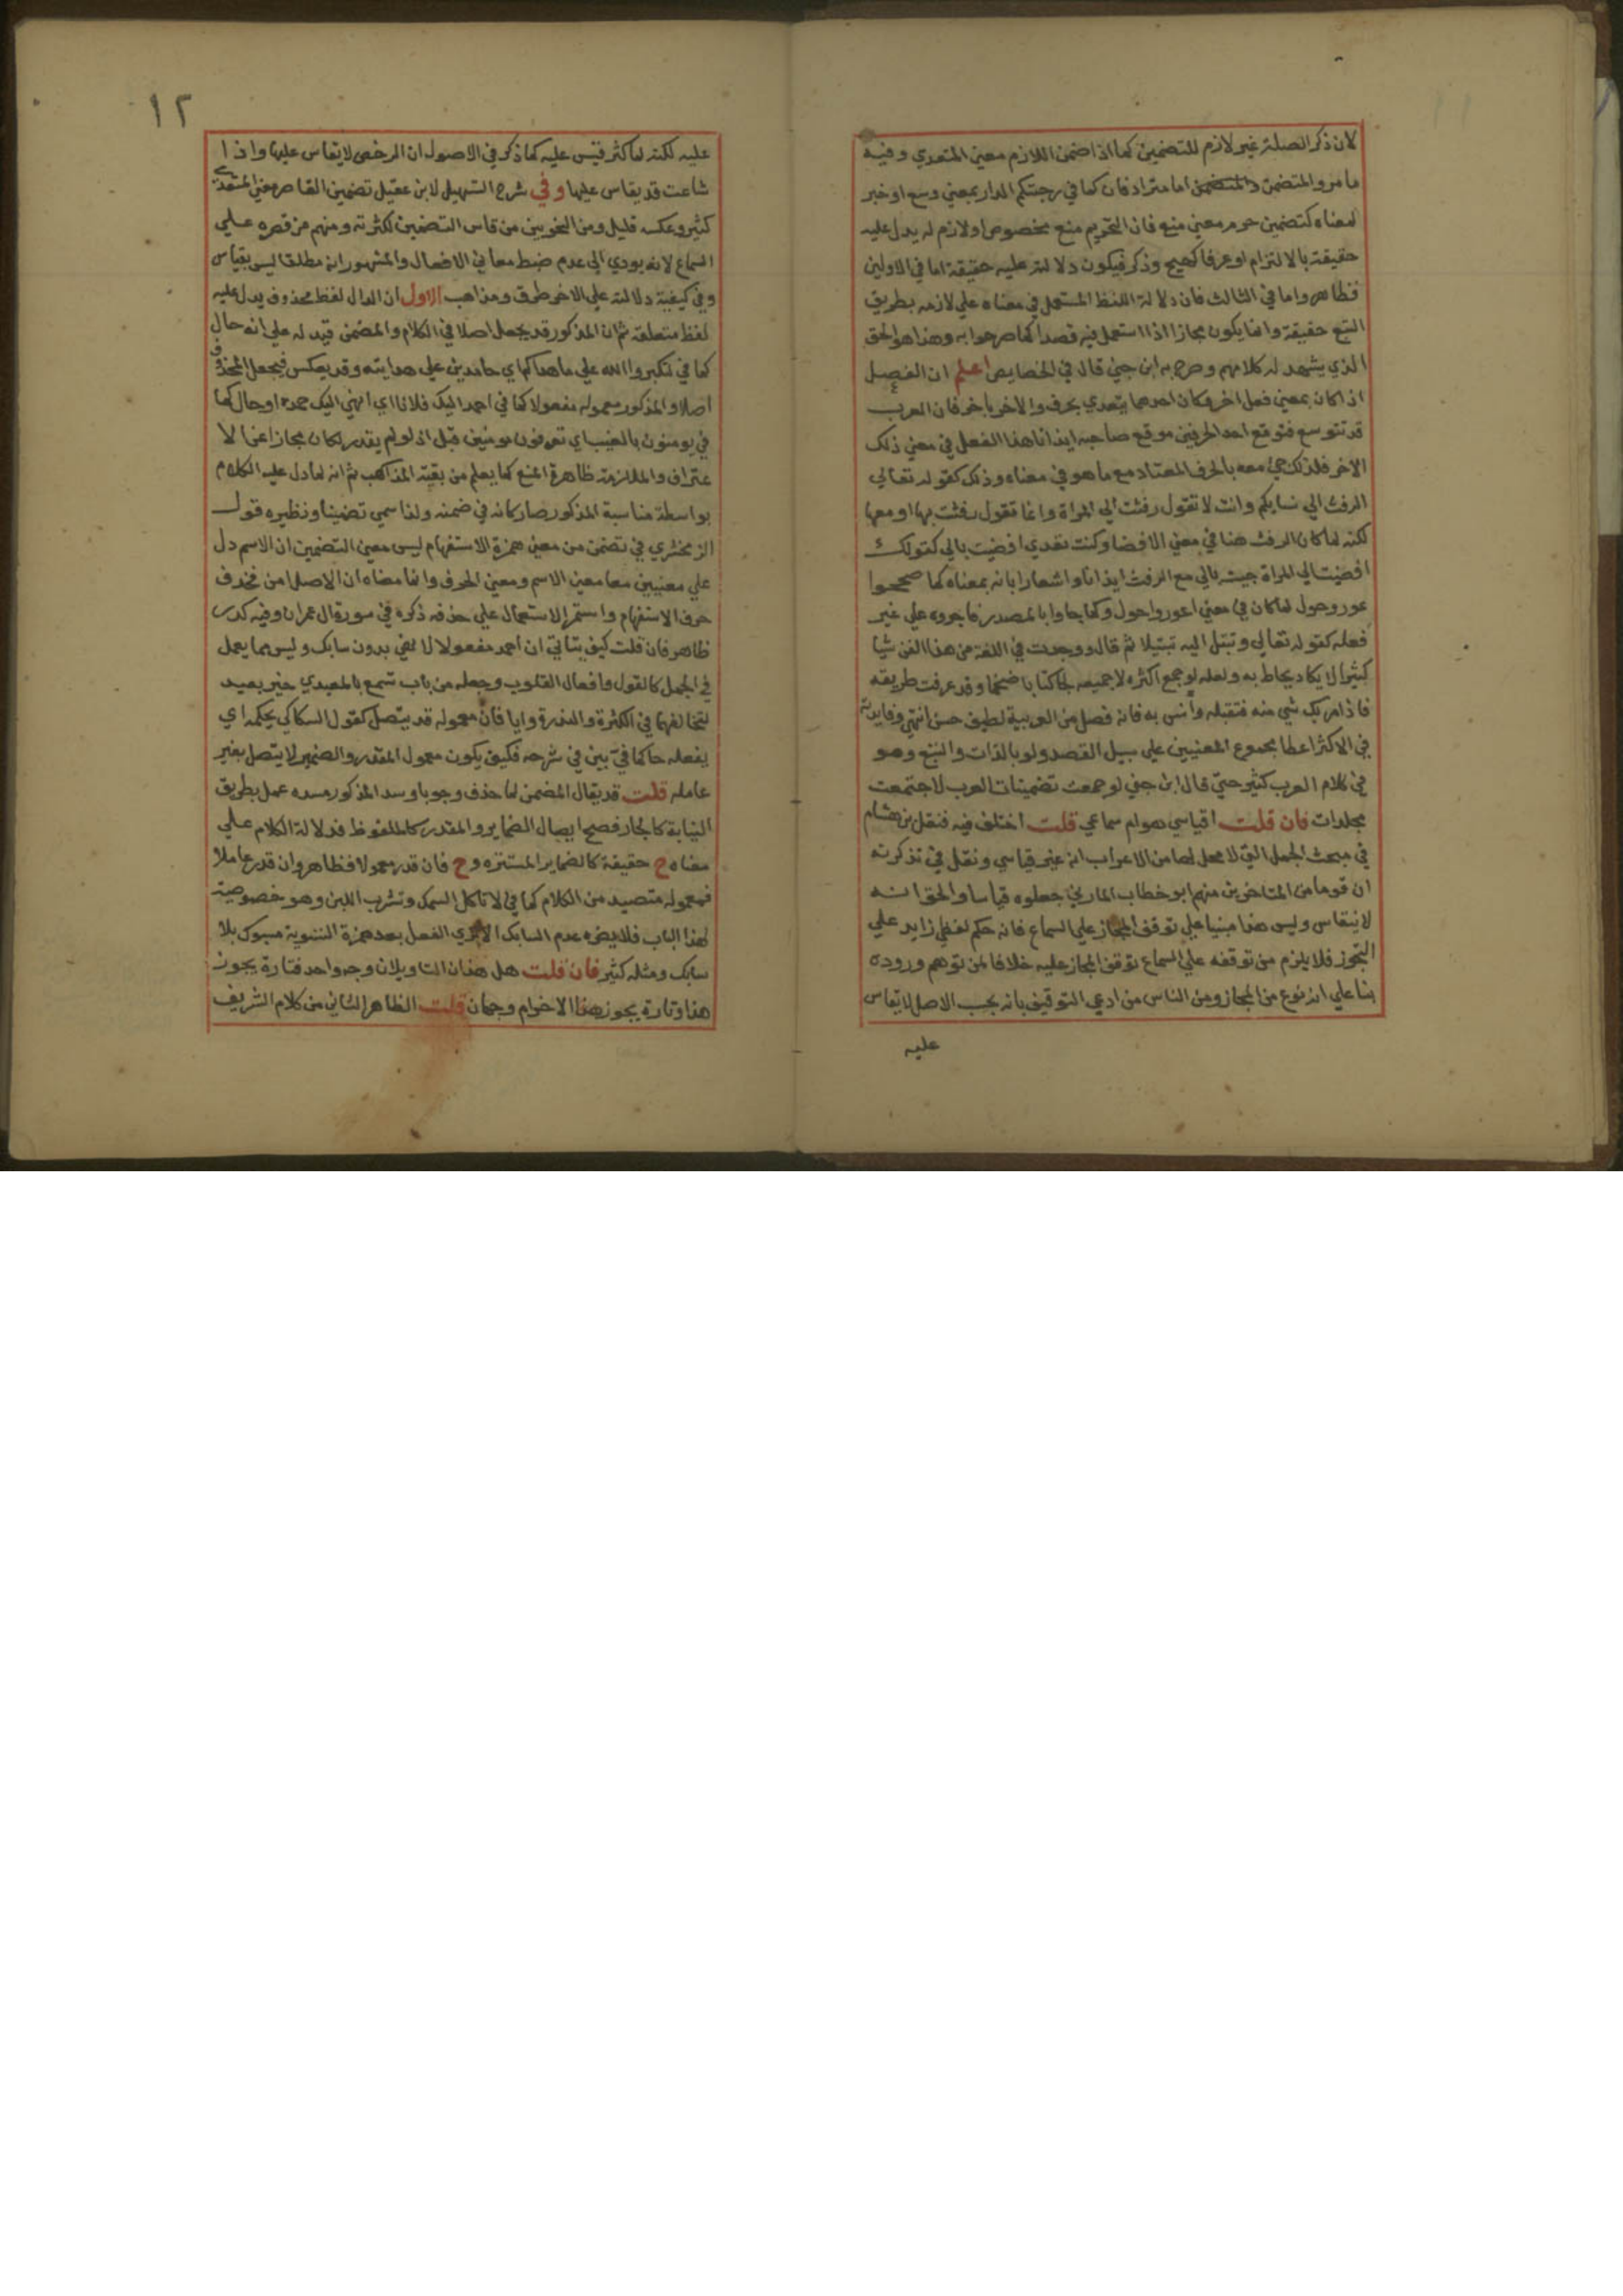 لان ذكر الصلة غير لازم للتضمين كما اذا ضمن اللازم معني المتعدي وفيه
ما مر والمتضمن والمتضمن اما مترادفان كما في رحبتكم الدار بمعني وسع او خبر
لمعناه كتضمين حرم معني منع فان التحريم منع مخصوص او لازم له يدل عليه
حقيقة بالالتزام او عرفا كهيج وذكر فيكون دلالته عليه حقيقة اما في الاولين
فظاهر واما في الثالث فان دلالة اللفظ المستعمل في معناه علي لازمه بطريق
التبع حقيقة وانما يكون مجازا اذا استعمل فيه قصدا كما صرحوا به وهذا هو الحق
الذي يشهد له كلامهم وصرح به ابن جني قال في الخصايص اعلم ان الفعل
اذا كان بمعني فعل اخر وكان احدهما يتعدي بحرف والاخر باخر فان العرب
قد تتوسع فتوقع احد الحرفين موقع صاحبه ايذانا هذا الفعل في معني ذلك
الاخر فلذلك جئ معه بالحرف المعتاد مع ما هو في معناه وذلك كقوله تعالي
الرفث الي نسايكم وانت لا تقول رفثت الي المراة وانما تقول رفثت بها او معها
لكنه لما كان الرفث هنا في معني الافضا وكنت تعدي افضيت بالي كقولك
افضيت الي المراة جيت بالي مع الرفث ايذانا واشعارا بانه بمعناه كما صححوا
عور وحول لما كان في معني اعور واحول وكما جاوا بالمصدر فاجروه علي غير
فعله كقوله تعالي وتبتل اليه تبتيلا ثم قال ووجدت في اللغة من هذا الفن شيا
كثيرا لا يكاد يحاط به ولعله لو جمع اكثره لا جميعه لجا كتابا ضخما وقد عرفت طريقه
فاذا مر بك شي منه فتقبله وأنس به فانه فصل من العربية لطيف حسن انتهي وفايدته
في الاكثر اعطا مجموع المعنيين علي سبيل القصد ولو بالذات والتبع وهو
في كلام العرب كثير حتي قال ابن جني لو جمعت تضمينات العرب لاجتمعت
مجلدات فان قلت اقياسي هو ام سماعي قلت اختلف فيه فنقل بن هشام
في مبحث الجمل التي لا محل لها من الاعراب انه غير قياسي ونقل في تذكرته
ان قوما من المتاخرين منهم ابو خطاب الماردي جعلوه قياسا والحق انه
لا ينقاس وليس هذا مبنيا علي توقف المجاز علي السماع فانه حكم لفظي زايد علي
التجوز فلا يلزم من توقفه علي السماع توقف المجاز عليه خلافا لمن توهم وروده
بنا علي انه نوع من المجاز ومن الناس من ادعي التوقيف بانه بحسب الاصل لا يقاس
عليه
١٢
عليه لكنه لما كثر قيس عليه كما ذكر في الاصول ان الرخص لا يقاس عليها واذا
شاعت قد يقاس عليها وفي شرح التسهيل لابن عقيل تضمين القاصر معني المتعدي
كثير وعكسه قليل ومن النحويين من قاس التضمين لكثرته ومنهم من قصره علي
السماع لانه يودي الي عدم ضبط معاني الافعال والمشهور انه مطلقا ليس بقياس
وفي كيفية دلالته علي الاخر طرق ومذاهب الاول ان الدال لفظ محذوف يدل عليه
لفظ متعلقه ثم ان المذكور قد يجعل اصلا في الكلام والمضمن قيد له علي انه حال
كما في لتكبروا الله علي ما هداكم اي حامدين علي هدايته وقد يعكس فيجعل المحذوف
اصلا والمذكور معموله مفعولا كما في احمد اليك فلانا اي انهي اليك حمده او حال كما
في يومنون بالغيب اي تعترفون مومنين قيل اذ لو لم يقدر لكان مجازا عن الا
عتراف والملازمة ظاهرة المنع كما يعلم من بقية المذاهب ثم انه لما دل عليه الكلام
بواسطة مناسبة المذكور صار كانه في ضمنه ولذا سمي تضمينا ونظيره قول
الزمخشري في تضمن من معني همزة الاستفهام ليس معني التضمين ان الاسم دل
علي معنيين معا معني الاسم ومعني الحرف وانما معناه ان الاصل امن فحذف
حرف الاستفهام واستمر الاستعمال علي حذفه ذكره في سورة ال عمران وفيه كدر
ظاهر فان قلت كيف يتاتي ان احمد مفعولا لا نهي بدون سابك وليس مما يعمل
في الجمل كالقول وافعال القلوب وجعله من باب تسمع بالمعيدي خير بعيد
لتخالفهما في الكثرة والندرة وايا فان معموله قد يتصل كقول السكاكي يحكمه اي
يفعله حاكما في بين في شرحه فكيف يكون معمول المقدر والضمير لا يتصل بغير
عامله قلت قد يقال المضمن لما حذف وجوبا وسد المذكور مسده عمل بطريق
النيابة كالجار فصح ايصال الضماير والمقدر كالملفوظ فدلالة الكلام علي
معناه ح حقيقة كالضماير المستتره وح فان قدر معمولا فظاهر وان قدر عاملا
فمعموله متصيد من الكلام كما في لا تاكل السمك وتشرب اللبن وهو خصوصية
لهذا الباب فلا يضره عدم السابك الا تري الفعل بعد همزة التسوية مسبوك بلا
سابك ومثله كثير فان قلت هل هذان التاويلان وجه واحد فتارة يجوز
هذا وتارة يجوز هذا الاخر ام وجهان قلت الظاهر الثاني من كلام الشريف